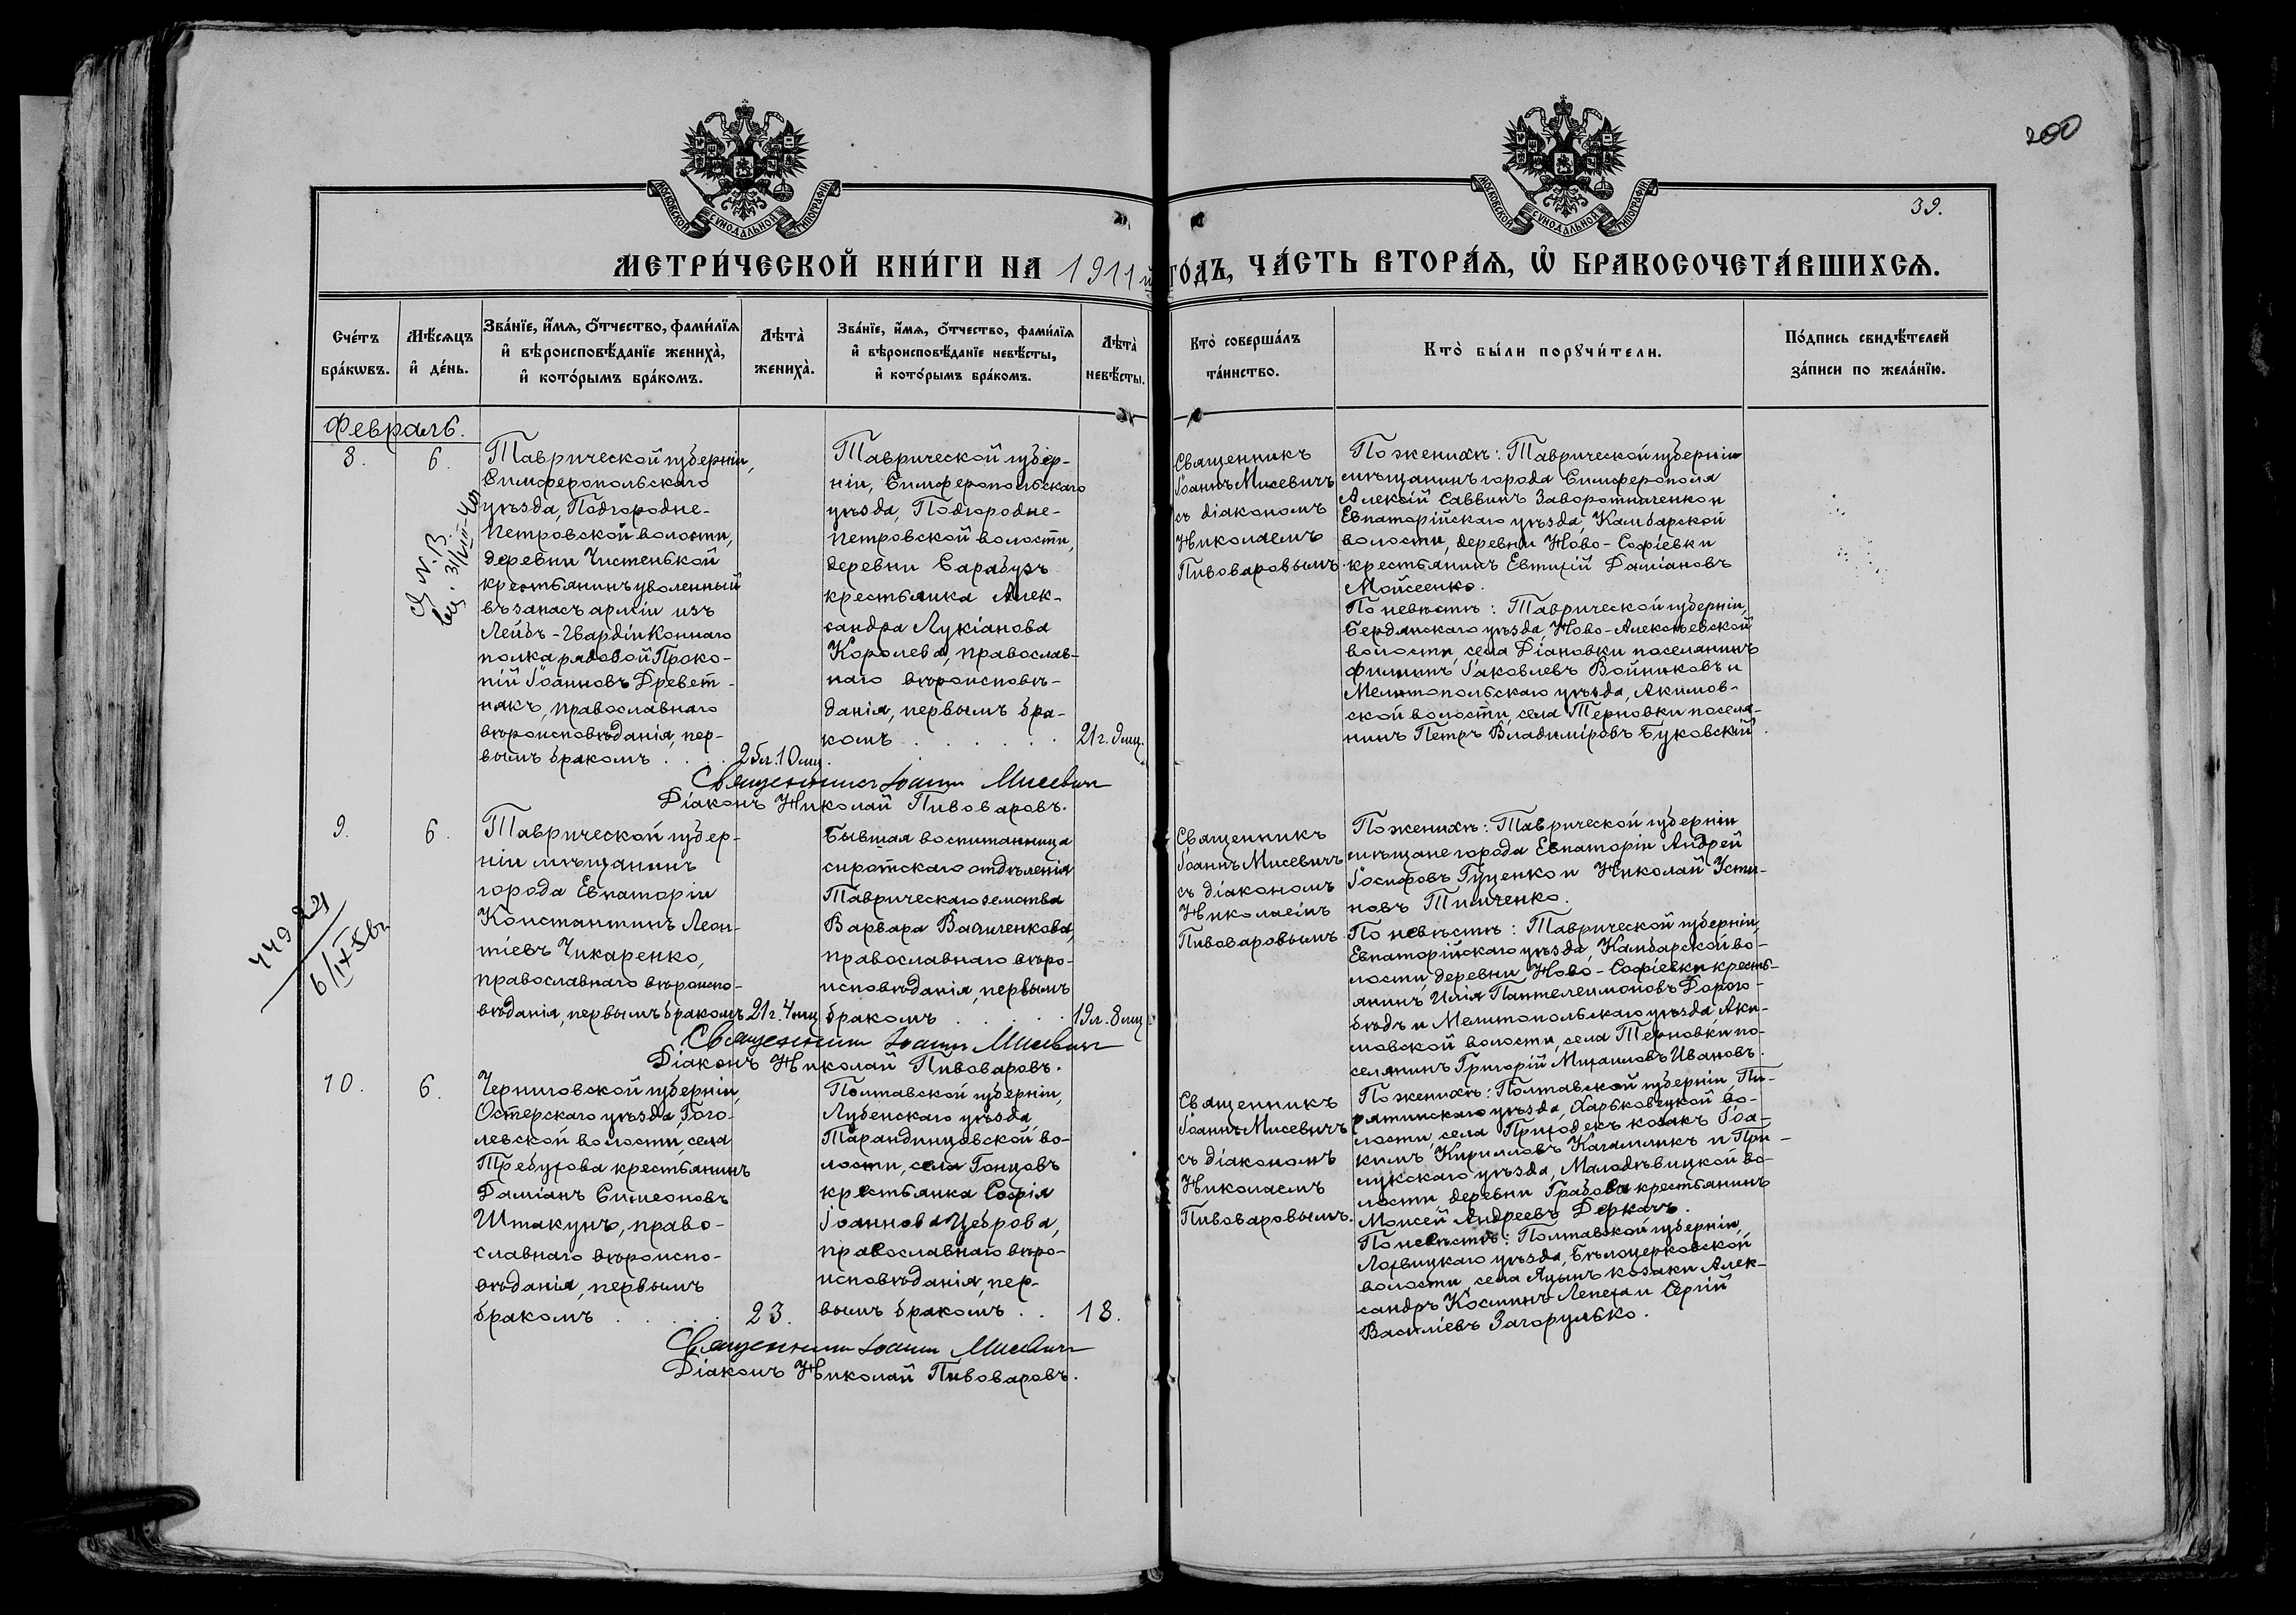 200
39.
МОСКОВСКОЙ СУНОДАЛЬНОЙ ТИПОГРАФІИ
МОСКОВСКОЙ СУНОДАЛЬНОЙ ТИПОГРАФІИ
МЕТРИ́ЧЕСКОЙ КНИ́ГИ НА 1911й ГО́ДЪ, ЧА́СТЬ ВТОРА́Я, Ѡ БРАКОСОЧЕТА́ВШИХСЯ.
Сче́тъ бра́кωвъ.
Мѣ́сяцъ и҆ де́нь.
Зва́нїе, и҆́мя, ѻ҆́тчество, фами́лїя
и҆ вѣроисповѣ́данїе жениха̀,
и҆ кото́рымъ бра́комъ.
Лѣта̀ жениха̀.
Зва́нїе, и҆́мя, ѻ҆́тчество, фами́лїя
и҆ вѣроисповѣ́данїе невѣ́сты,
и҆ кото́рымъ бра́комъ.
Лѣта̀ невѣ́сты.
Кто̀ соверша́лъ
та́инство.
Кто̀ бы́ли порꙋчи́тели.
По́дпись свидѣ́телей
за́писи по жела́нїю.
Февраль.
8.
6.
Таврической губерніи,
Симферопольскаго
уѣзда, Подгородне-
Петровской волости,
деревни Чистенькой
крестьянинъ уволенный
въ запасъ арміи изъ
Лейбъ-Гвардіи Коннаго
полка рядовой Проко-
пій Іоанновъ Древет-
някъ, православнаго
вѣроисповѣданія, пер-
вымъ бракомъ . . . .
25л. 10мц.
Таврической губер-
ніи, Симферопольскаго
уѣзда, Подгородне-
Петровской волости,
деревни Сарабузъ
крестьянка Алек-
сандра Лукіанова
Королева, православ-
наго вѣроисповѣ-
данія, первымъ бра-
комъ . . . . . .
21г. 9мц.
Священникъ Іоаннъ Мисевич
Діаконъ Николай Пивоваровъ.
Священникъ
Іоаннъ Мисевичъ
съ діакономъ
Николаемъ
Пивоваровымъ.
По женихѣ: Таврической губерніи
мѣщанинъ города Симферополя
Алексій Саввинъ Заворотниченко и
Евпаторійскаго уѣзда, Камбарской
волости, деревни Ново-Софіевки
крестьянинъ Евтихій Даміановъ
Мойсеенко.
По невѣстѣ: Таврической губерніи,
Бердянскаго уѣзда, Ново-Алексѣевской
волости, села Діановки поселянинъ
Филиппъ Іаковлевъ Войниковъ и
Мелитопольскаго уѣзда, Акимов-
ской волости, села Терновки поселя-
нинъ Петръ Владиміровъ Буковскій.
9.
6.
Таврической губер-
ніи мѣщанинъ
города Евпаторіи
Константинъ Леон-
тіевъ Чикаренко,
православнаго вѣроиспо-
вѣданія, первымъ бракомъ
21г. 4мц.
Бывшая воспитанница
сиротскаго отдѣленія
Таврическаго земства
Варвара Васиченкова,
православнаго вѣро-
исповѣданія, первымъ
бракомъ . . . . .
19л. 8мц.
Священникъ Іоаннъ Мисевич
Діаконъ Николай Пивоваровъ.
Священникъ
Іоаннъ Мисевичъ
съ діакономъ
Николаемъ
Пивоваровымъ.
По женихѣ: Таврической губерніи
мѣщане города Евпаторіи Андрей
Іосифовъ Гуценко и Николай Усти-
новъ Тимченко.
По невѣстѣ: Таврической губерніи,
Евпаторійскаго уѣзда, Камбарской во-
лости, деревни Ново-Софіевки кресть-
янинъ Илія Пантелеимоновъ Дорого-
бѣдъ и Мелитопольскаго уѣзда, Аки-
мовской волости, села Терновки по-
селянинъ Григорій Михаиловъ Ивановъ.
10.
6.
Черниговской губерніи,
Остерскаго уѣзда, Гого-
левской волости, села
Требухова крестьянинъ
Даміанъ Симеоновъ
Штакунъ, право-
славнаго вѣроиспо-
вѣданія, первымъ
бракомъ . . . . .
23.
Полтавской губерніи,
Лубенскаго уѣзда
Тарандинцовской во-
лости, села Гонцовъ
крестьянка Софія
Іоаннова Цеброва,
православнаго вѣро-
исповѣданія, пер-
вымъ бракомъ . .
18.
Священникъ Іоаннъ Мисевич
Діаконъ Николай Пивоваровъ.
Священникъ
Іоаннъ Мисевичъ
съ діакономъ
Николаемъ
Пивоваровымъ.
По женихѣ: Полтавской губерніи, Пи-
рятинскаго уѣзда, Харьковецкой во-
лости, села Приходекъ козакъ Іоа-
кимъ Кирилловъ Кагамлыкъ и При-
лукскаго уѣзда, Малодѣвицкой во-
лости деревни Грабова крестьянинъ
Моисей Андреевъ Деркачъ.
По невѣстѣ: Полтавской губерніи,
Лохвицкаго уѣзда, Бѣлоцерковской
волости, села Яцынъ козаки Алек-
сандръ Косминъ Лепеха и Сергій
Василіевъ Загорулько.